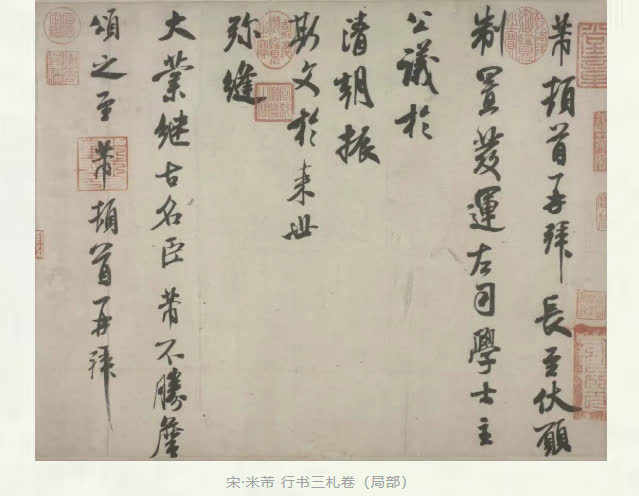 芾頓首再拜 長至伏願
制置發運左司學士主
公議於
清朝振
斯文於来世
弥縫
大業继古名臣 芾不勝詹
頌之至 芾頓首再拜
宋·米芾 行书三札卷（局部）